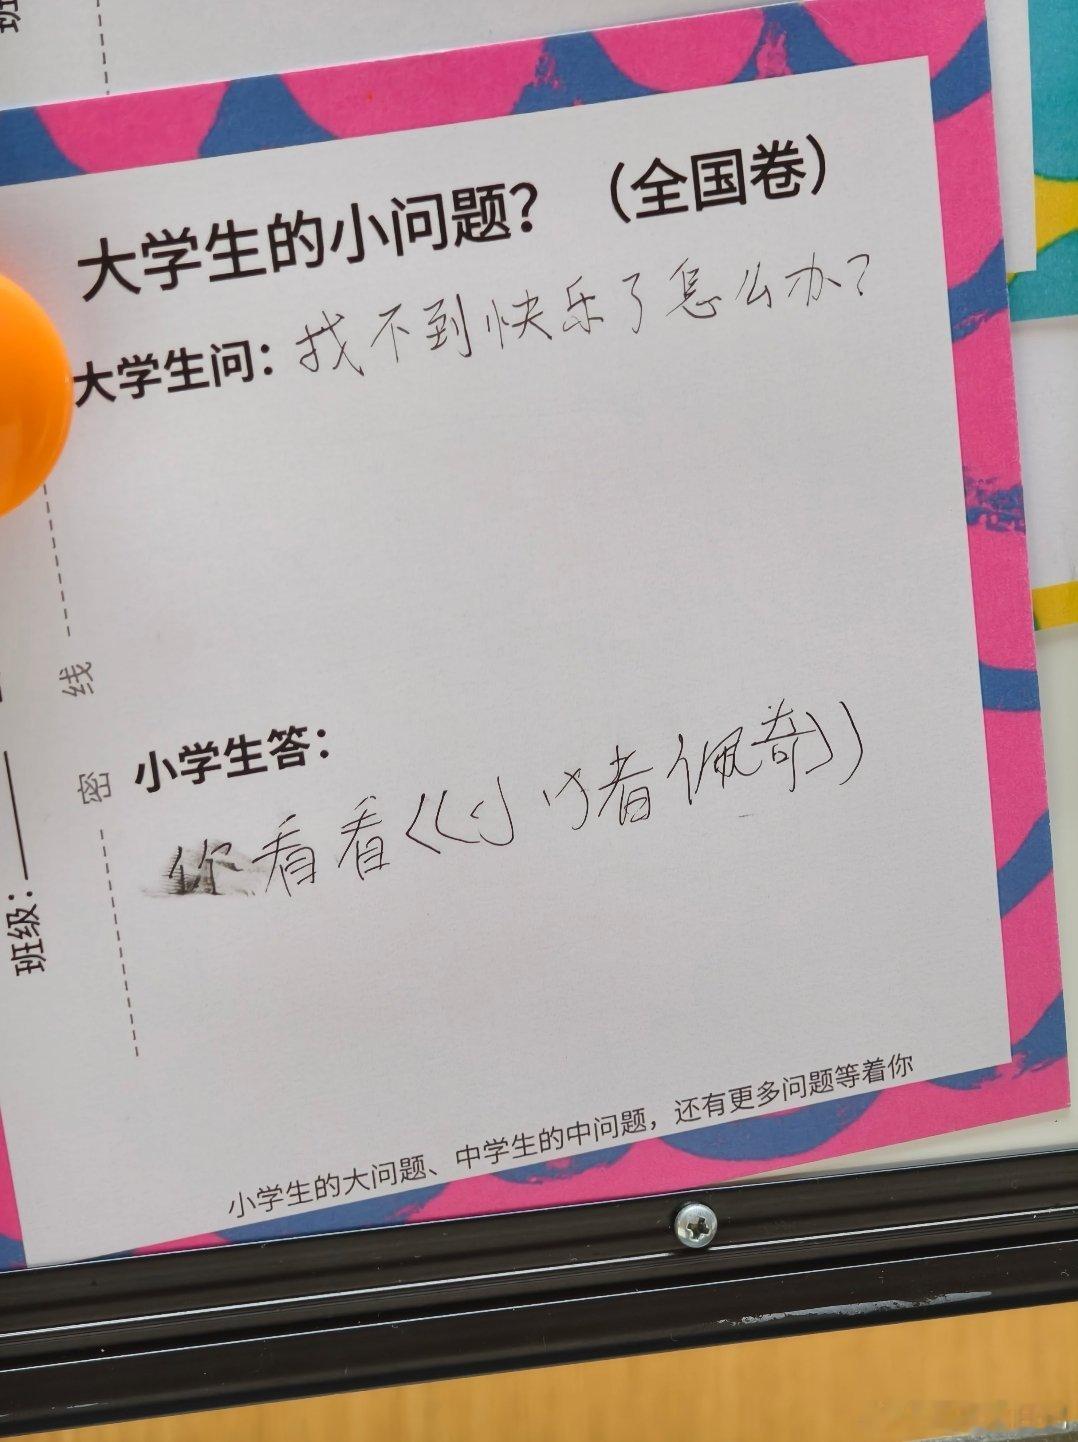 大学生的小问题？（全国卷）
大学生问：找不到快乐了怎么办？
小学生答：
你看看《小猪佩奇》
小学生的大问题、中学生的中问题，还有更多问题等着你
线
密
班级：
班